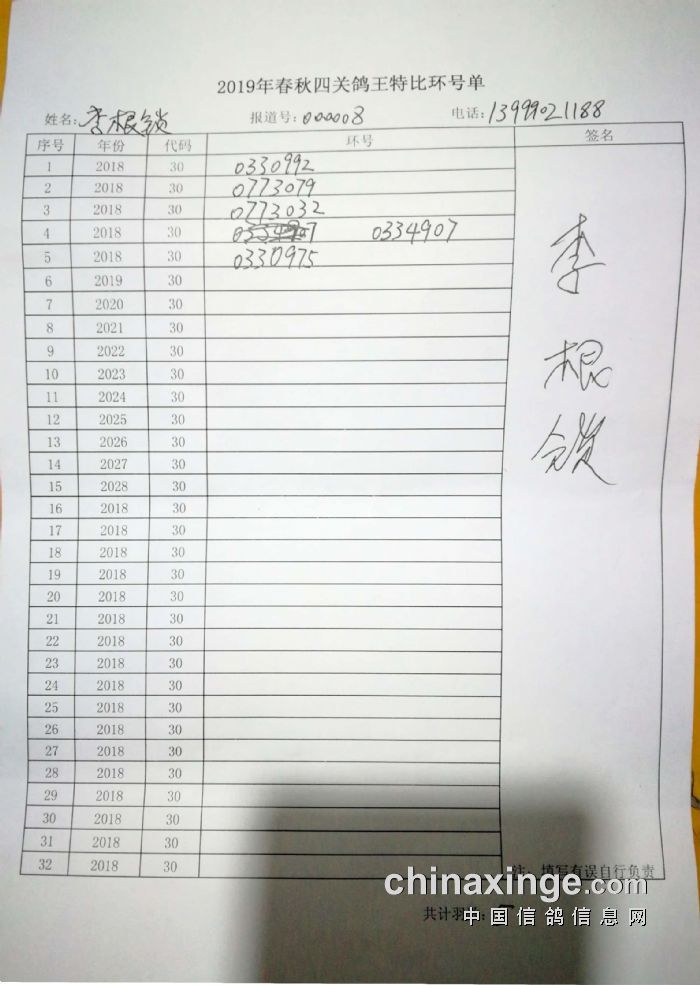 2019年春秋四关鸽王特比环号单
姓名:李根锁 报道号:000008 电话:13999021188
序号 年份 代码 环号 签名
1 2018 30 0330992
2 2018 30 0773079
3 2018 30 0773032
4 2018 30 0334907
5 2018 30 0330975
6 2019 30
7 2020 30
8 2021 30
9 2022 30
10 2023 30
11 2024 30
12 2025 30
13 2026 30
14 2027 30
15 2028 30
16 2018 30
17 2018 30
18 2018 30
19 2018 30
20 2018 30
21 2018 30
22 2018 30
23 2018 30
24 2018 30
25 2018 30
26 2018 30
27 2018 30
28 2018 30
29 2018 30
30 2018 30
31 2018 30
32 2018 30
李
根
锁
注:填写有误自行负责
chinaxinge.com
共计羽
中国信鸽信息网